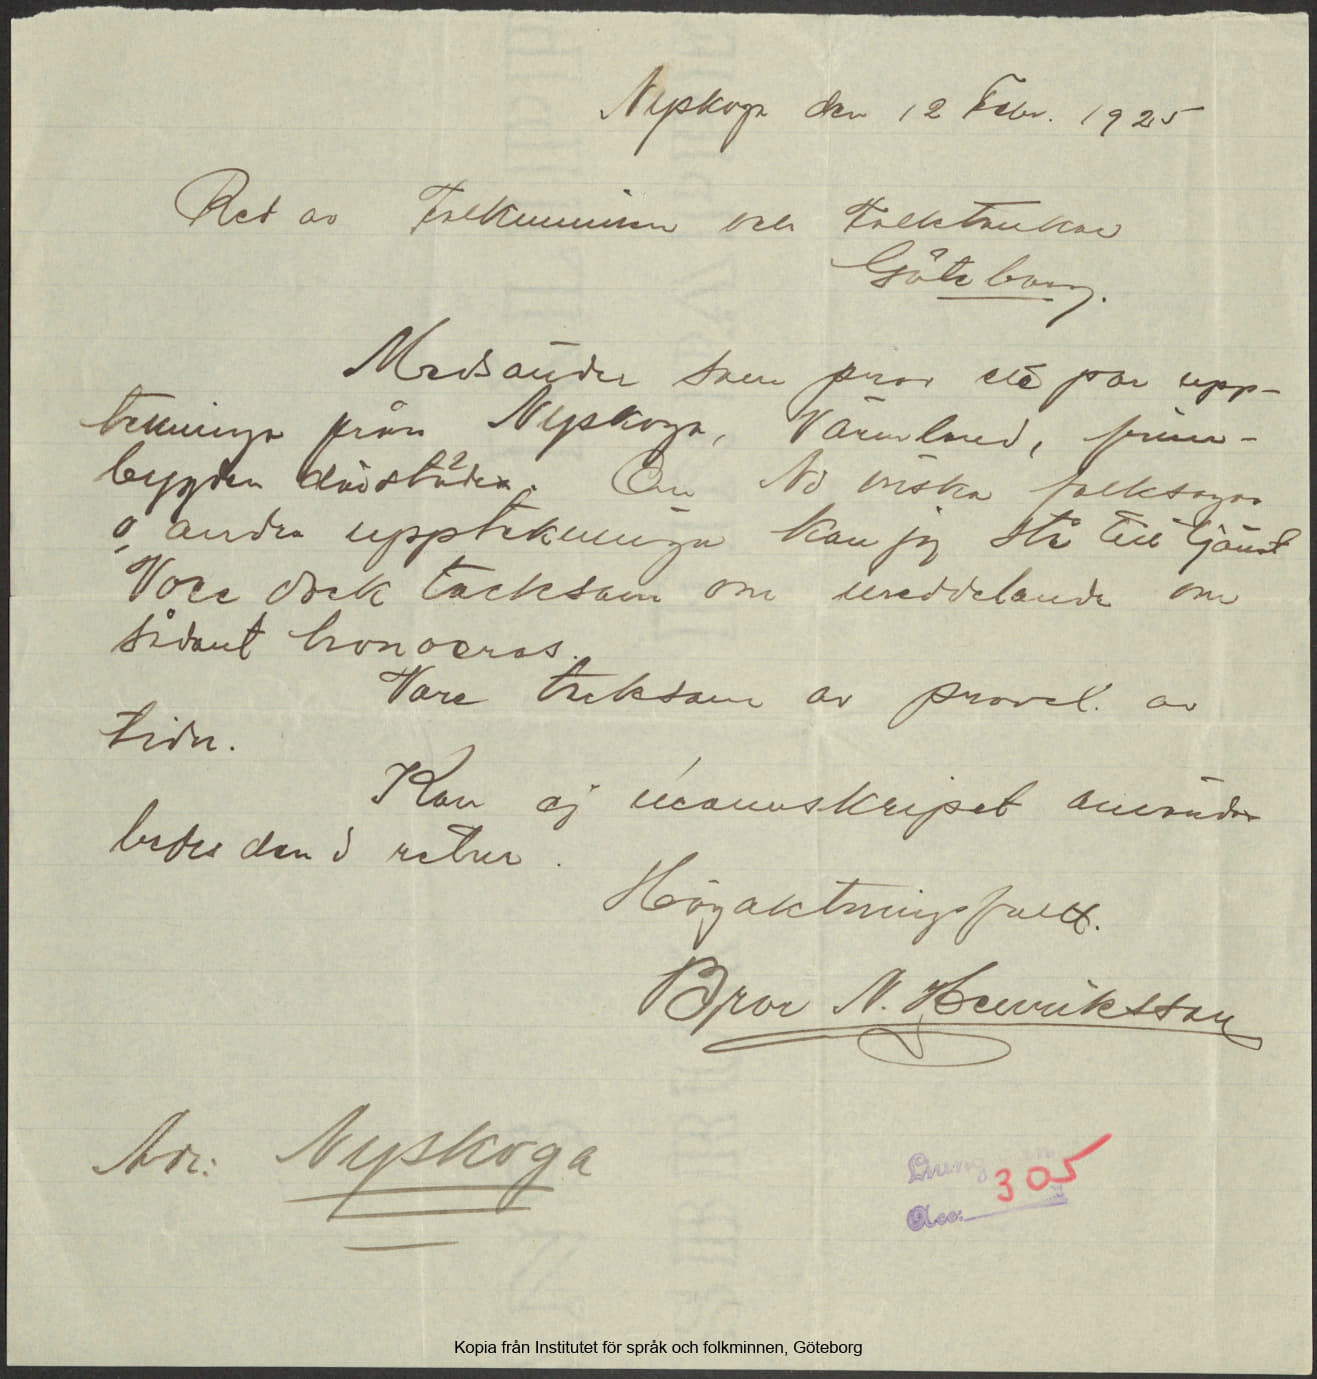 Nyskoga den 12 Febr. 1925
Red av Folkminnen och Folktankar
Göteborg.
Medsänder som prov ett par upp-
teckninga från Nyskoga, Värmland, finn-
bygden därstädes. Om Ni önska folksagor
o, andra uppteckningar kan jag stå till tjänst
Vore dock tacksam om meddelande om
sådant honoreras.
Vore tacksam av provex. av
tidn.
Kan ej manuskripet användas
bedes den i retur.
Högaktningsfullt.
Bror N. Henriksson
Adr: Nyskoga
305
Acc:
Kopia från Institutet för språk och folkminnen, Göteborg